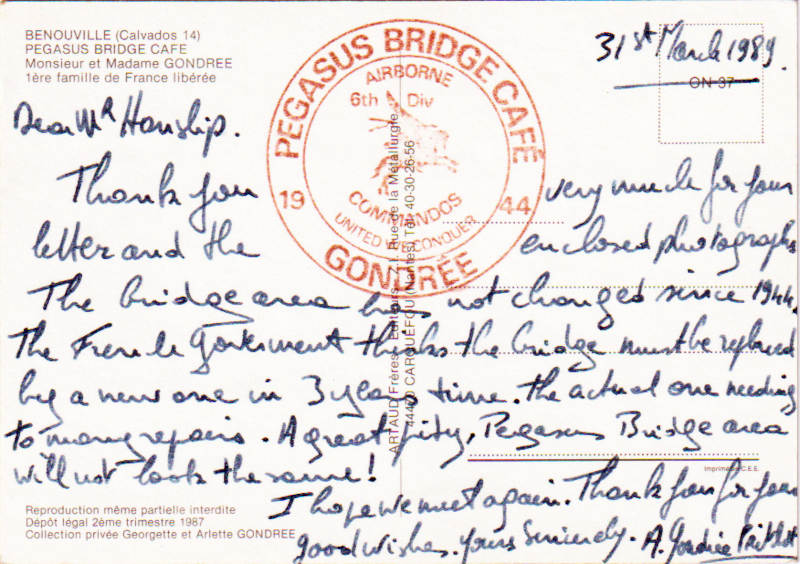 BENOUVILLE (Calvados 14)
PEGASUS BRIDGE CAFE
Monsieur et Madame GONDREE
1ère famille de France libérée
31st March 1989.
ON 37
PEGASUS BRIDGE CAFÉ
AIRBORNE
6th Div
19 44
COMMANDOS
UNITED WE CONQUER
GONDRÉE
Dear Mr Hanship.
Thank you very much for your
letter and the enclosed photographs
The bridge area has not changed since 1944.
The French Goverment thinks the bridge must be replaced
by a new one in 3 years time. the actual one needing
to many repairs. A great pity, Pegasus Bridge area
will not look the same!
I hope we meet again. Thank you for your
good wishes. Yours Sincerely. A. Gondrée
ARTAUD Frères, Editeurs, Z.I. Rue de la Métallurgie
44470 CARQUEFOU (Nantes) Tél. 40-30-26-56
Imprimé en C.E.E.
Reproduction même partielle interdite
Dépôt légal 2ème trimestre 1987
Collection privée Georgette et Arlette GONDREE